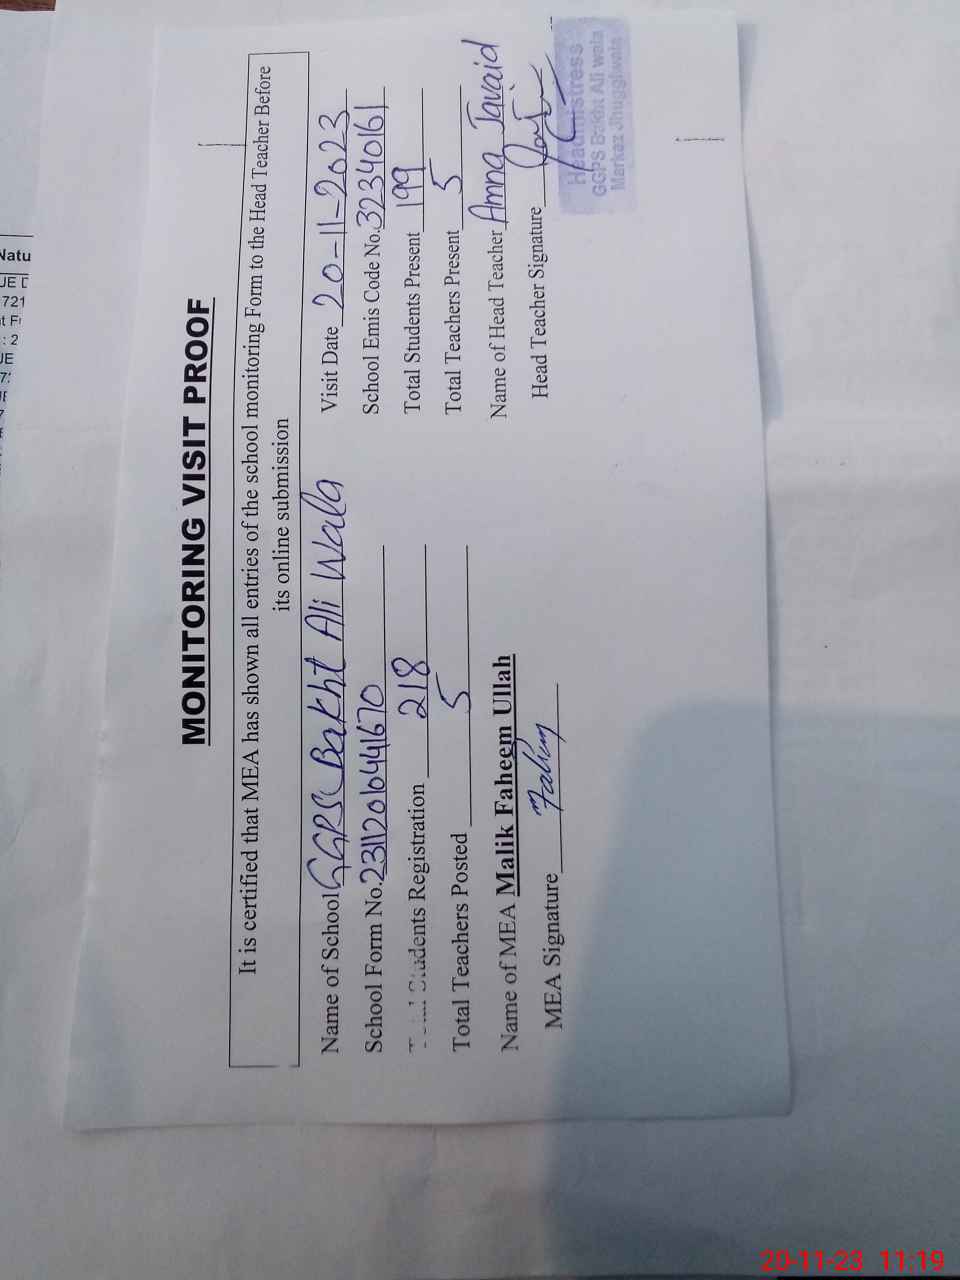 MONITORING VISIT PROOF
It is certified that MEA has shown all entries of the school monitoring Form to the Head Teacher Before
its online submission
Name of School GGPS Bakht Ali Wala Visit Date 20-11-2023
School Form No. 231120161041670 School Emis Code No. 32340161
Total Students Registration 218 Total Students Present 199
Total Teachers Posted 5 Total Teachers Present 5
Name of MEA Malik Faheem Ullah Name of Head Teacher Amna Javaid
MEA Signature Fahim Head Teacher Signature
Headmistress
GGPS Bakht Ali wala
Markaz Jhuggiwala
Natu
JE D
721
t F
: 2
JE
20-11-23 11:19